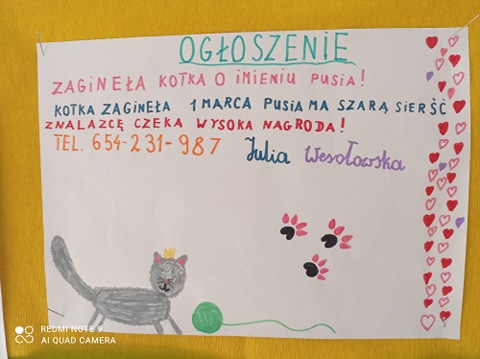 OGŁOSZENIE
ZAGINEŁA KOTKA O IMIENIU PUSIA!
KOTKA ZAGINEŁA 1 MARCA PUSIA MA SZARĄ SIERŚĆ
ZNALAZCĘ CZEKA WYSOKA NAGRODA!
TEL. 654-231-987 Julia Wesołowska
REDMI NOTE 9
AI QUAD CAMERA